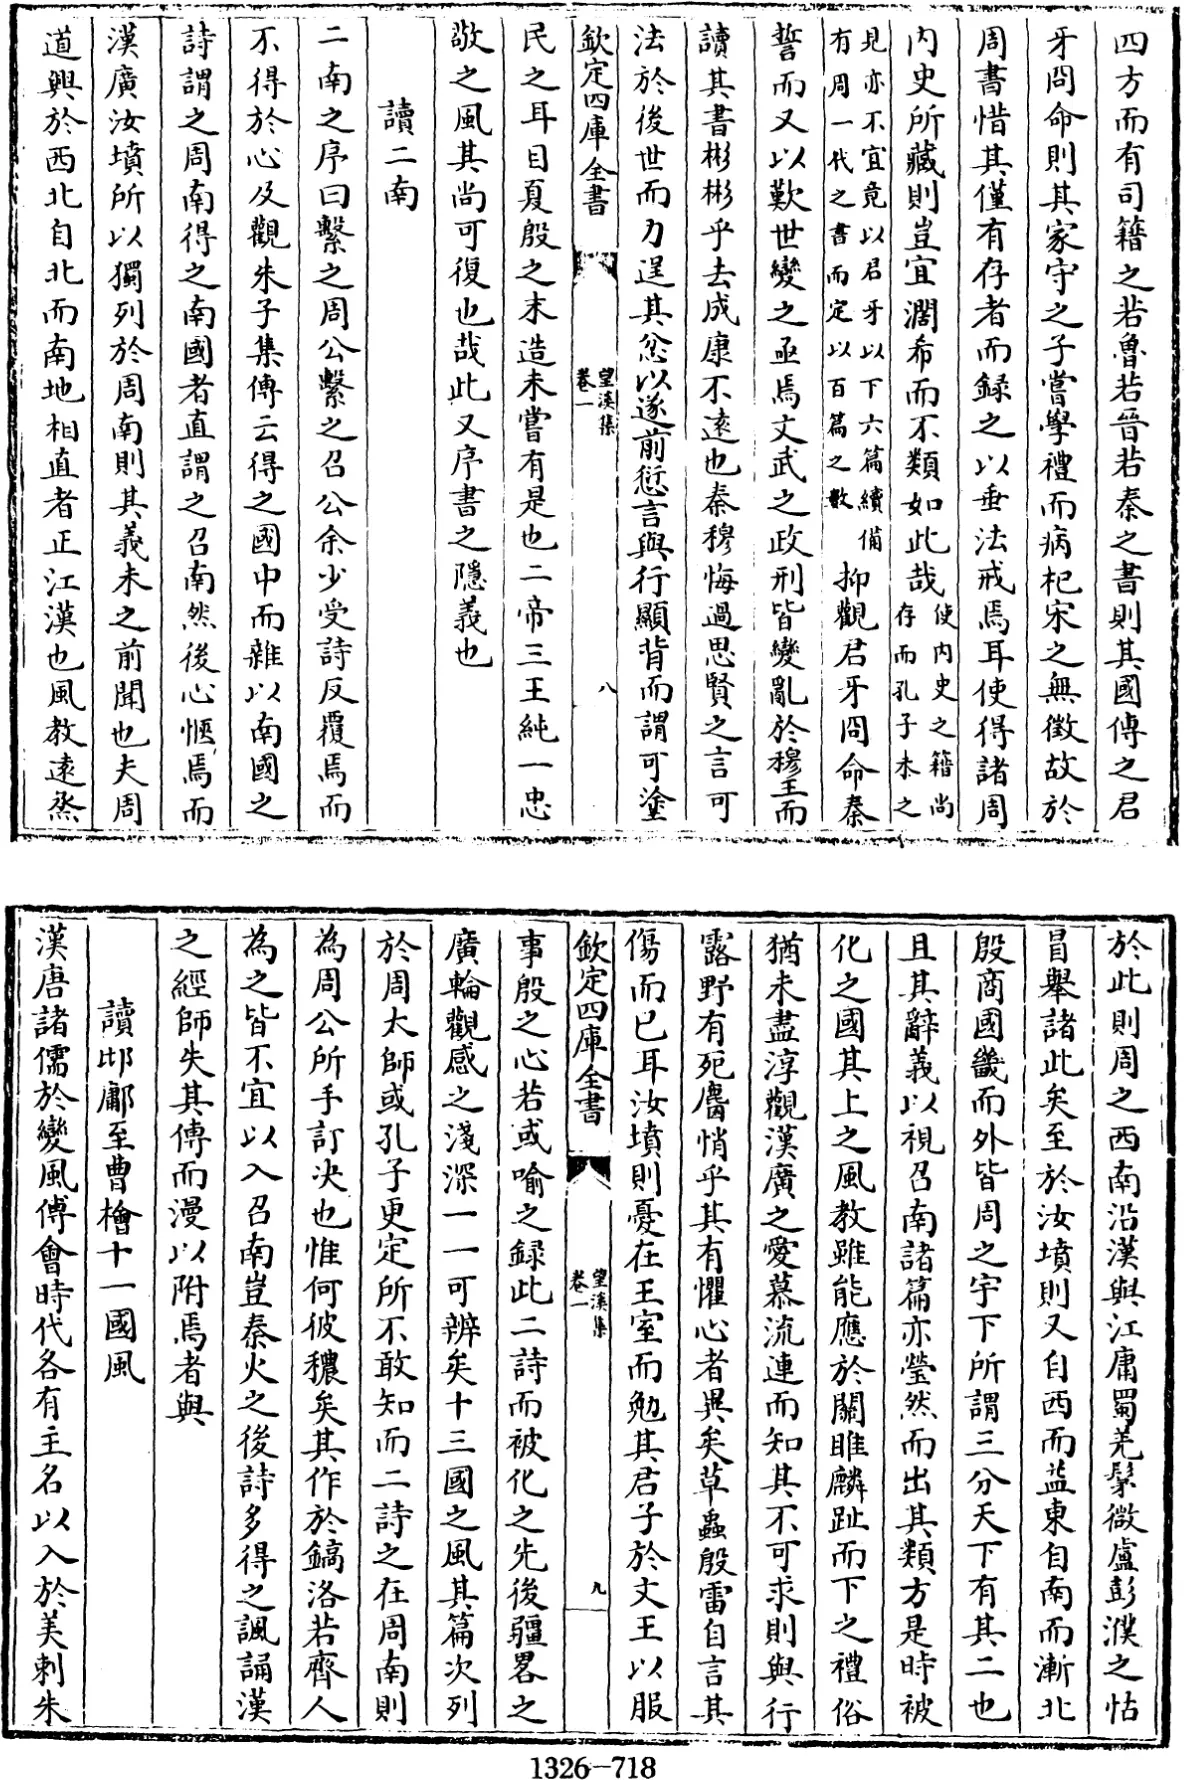 四方而有司籍之若魯若晉若秦之書則其國傳之君
牙冏命則其家守之子嘗學禮而病杞宋之無徵故於
周書惜其僅有存者而録之以垂法戒焉耳使得諸周
内史所藏則豈宜濶希而不類如此哉使内史之籍尚
存而孔子未之
見亦不宜竟以君牙以下六篇續備
有周一代之書而定以百篇之數
抑觀君牙冏命秦
誓而又以歎世變之亟焉文武之政刑皆變亂於穆王而
讀其書彬彬乎去成康不逺也秦穆悔過思賢之言可
法於後世而力逞其忿以遂前愆言與行顯背而謂可塗
欽定四庫全書
望溪集
卷一
八
民之耳目夏殷之末造未嘗有是也二帝三王純一忠
敬之風其尚可復也哉此又序書之隱義也
讀二南
二南之序曰繫之周公繫之召公余少受詩反覆焉而
不得於心及觀朱子集傳云得之國中而雜以南國之
詩謂之周南得之南國者直謂之召南然後心愜焉而
漢廣汝墳所以獨列於周南則其義未之前聞也夫周
道興於西北自北而南地相直者正江漢也風教逺烝
於此則周之西南沿漢與江庸蜀羌髳微盧彭濮之怙
冒舉諸此矣至於汝墳則又自西而益東自南而漸北
殷商國畿而外皆周之宇下所謂三分天下有其二也
且其辭義以視召南諸篇亦瑩然而出其類方是時被
化之國其上之風教雖能應於關雎麟趾而下之禮俗
猶未盡淳觀漢廣之愛慕流連而知其不可求則與行
露野有死麕悄乎其有懼心者異矣草蟲殷雷自言其
傷而已耳汝墳則憂在王室而勉其君子於文王以服
欽定四庫全書
望溪集
卷一
九
事殷之心若或喻之録此二詩而被化之先後疆畧之
廣輪觀感之淺深一一可辨矣十三國之風其篇次列
於周太師或孔子更定所不敢知而二詩之在周南則
為周公所手訂决也惟何彼穠矣其作於鎬洛若齊人
為之皆不宜以入召南豈秦火之後詩多得之諷誦漢
之經師失其傳而漫以附焉者與
讀邶鄘至曹檜十一國風
漢唐諸儒於變風傅會時代各有主名以入於美刺朱
1326-718